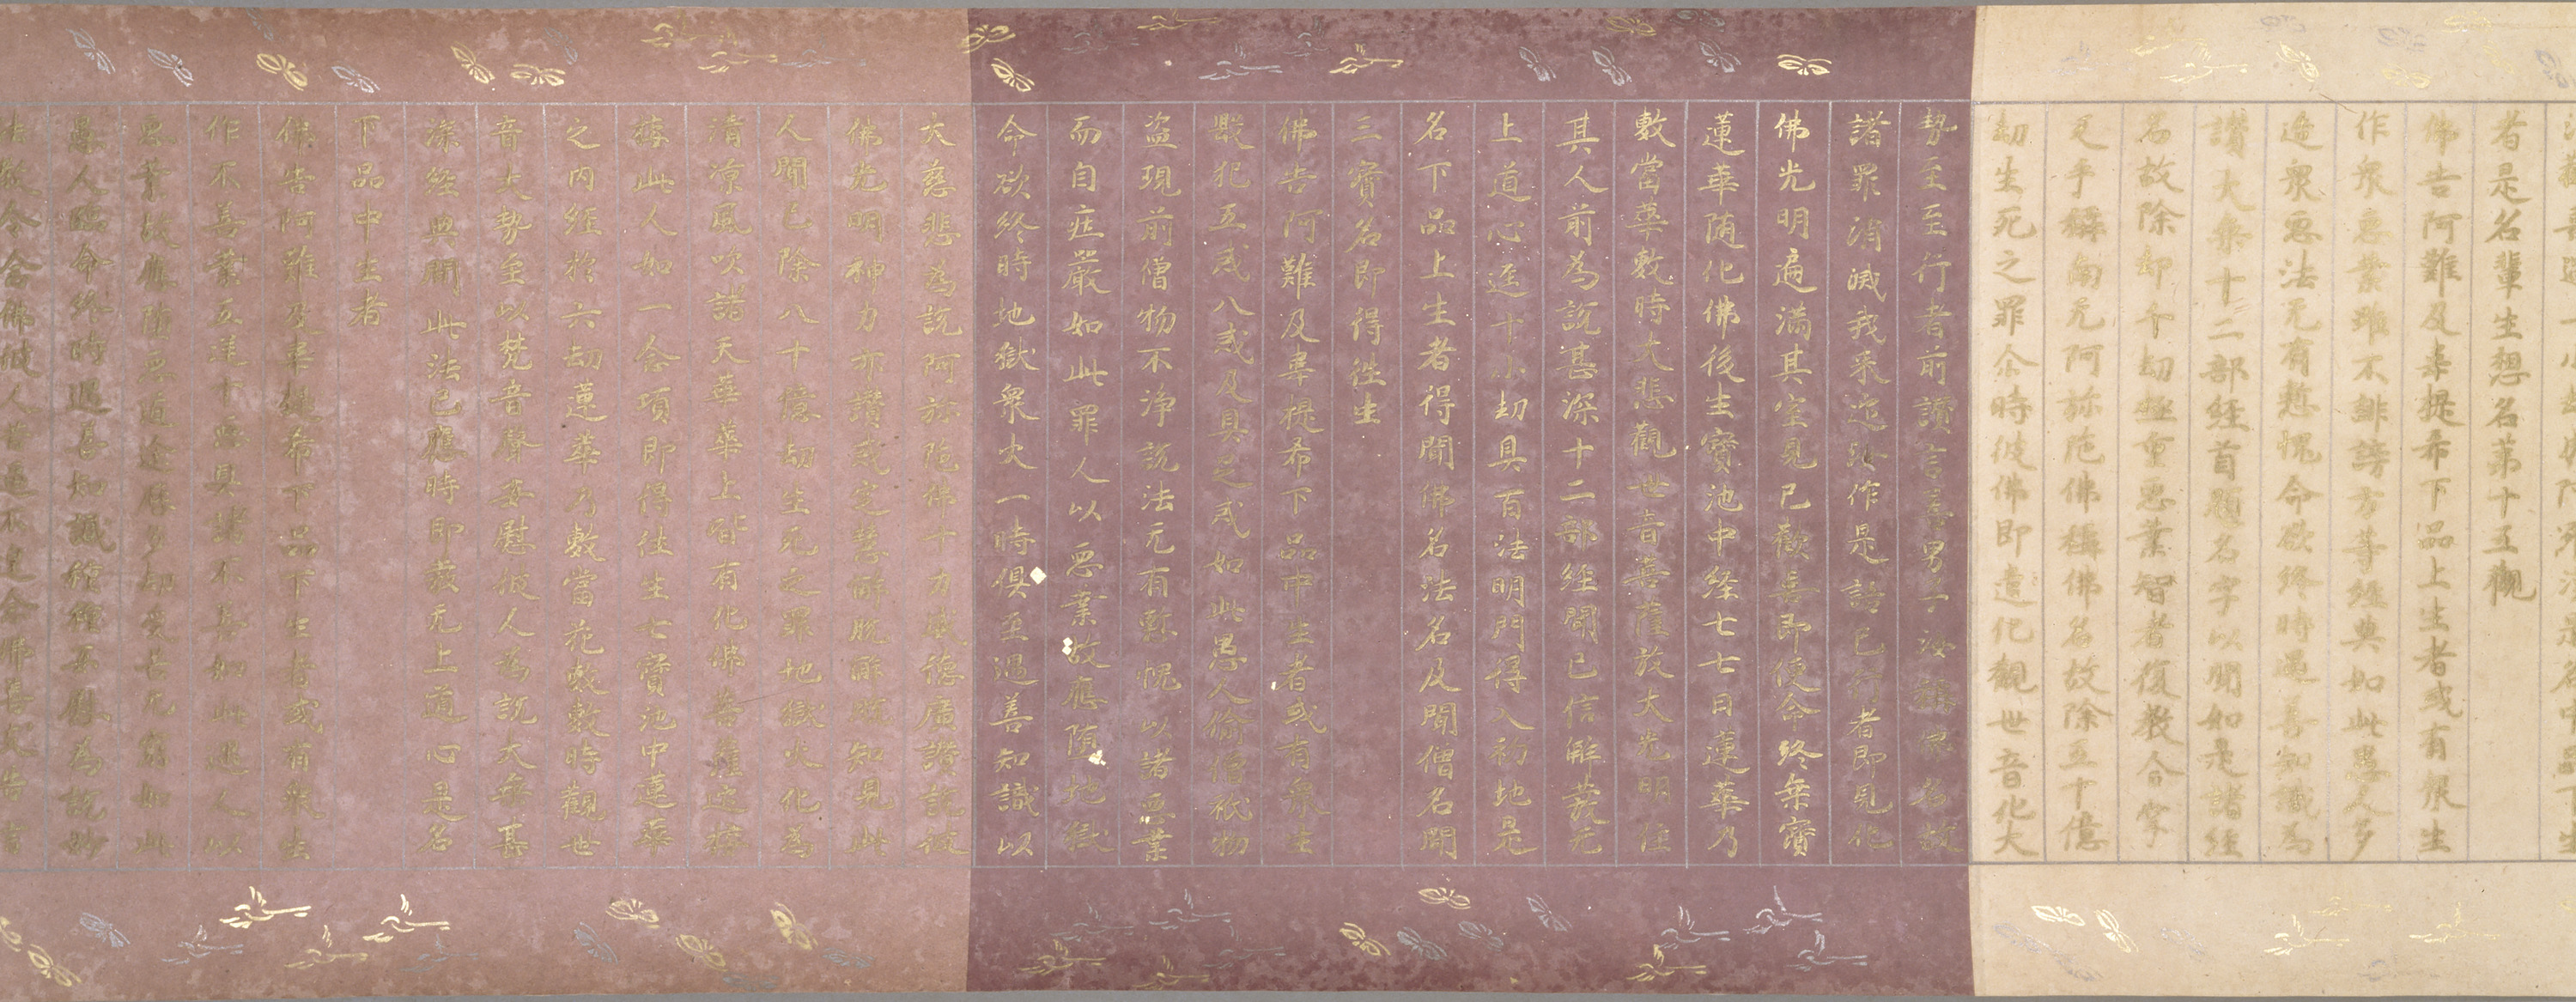 者是名輩生想名第十五觀
佛告阿難及韋提希下品上生者或有衆生
作衆惡業雖不誹謗方等經典如此愚人多
造衆惡法无有慙愧命欲終時遇善知識為
讚大乗十二部経首題名字以聞如是諸経
名故除却千劫極重惡業智者復教合掌
叉手稱南无阿弥陀佛稱佛名故除五十億
劫生死之罪尒時彼佛即遣化觀世音化大
勢至至行者前讃言善男子汝稱佛名故
諸罪消滅我来迎汝作是語已行者即見化
佛光明遍滿其室見已歡喜即便命終乗寶
蓮華随化佛後生寶池中経七七日蓮華乃
敷當華敷時大悲觀世音菩薩放大光明住
其人前為說甚深十二部経聞已信解發无
上道心逕十小劫具百法明門得入初地是
名下品上生者得聞佛名法名及聞僧名聞
三寶名即得往生
佛告阿難及韋提希下品中生者或有衆生
毀犯五戒八戒及具足戒如此愚人偷僧祇物
盗現前僧物不浄說法无有慙愧以諸惡業
而自莊嚴如此罪人以惡業故應堕地獄
命欲終時地獄衆火一時俱至遇善知識以
大慈悲為說阿弥陀佛十力威德廣讃說彼
佛光明神力亦讃戒定慧解脱解脱知見此
人聞已除八十億劫生死之罪地獄火化為
清凉風吹諸天華華上皆有化佛菩薩迎接
此人如一念頃即得往生七寶池中蓮華
之内経於六劫蓮華乃敷當花敷敷時觀世
音大勢至以梵音聲安慰彼人為說大乗甚
深経典聞此法已應時即發无上道心是名
下品中生者
佛告阿難及韋提希下品下生者或有衆生
作不善業五逆十惡具諸不善如此愚人以
惡業故應堕惡道逕歴多劫受苦无窮如此
愚人臨命終時遇善知識種種安慰為說妙
法教令念佛彼人苦逼不遑念佛善友告言